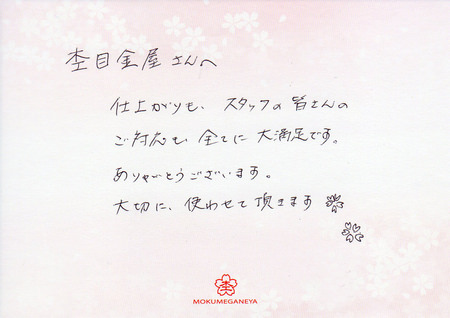 杢目金屋さんへ
仕上がりも、スタッフの皆さんの
ご対応も 全てに 大満足です。
ありがとうございます。
大切に、使わせて頂きます
杢
MOKUMEGANEYA